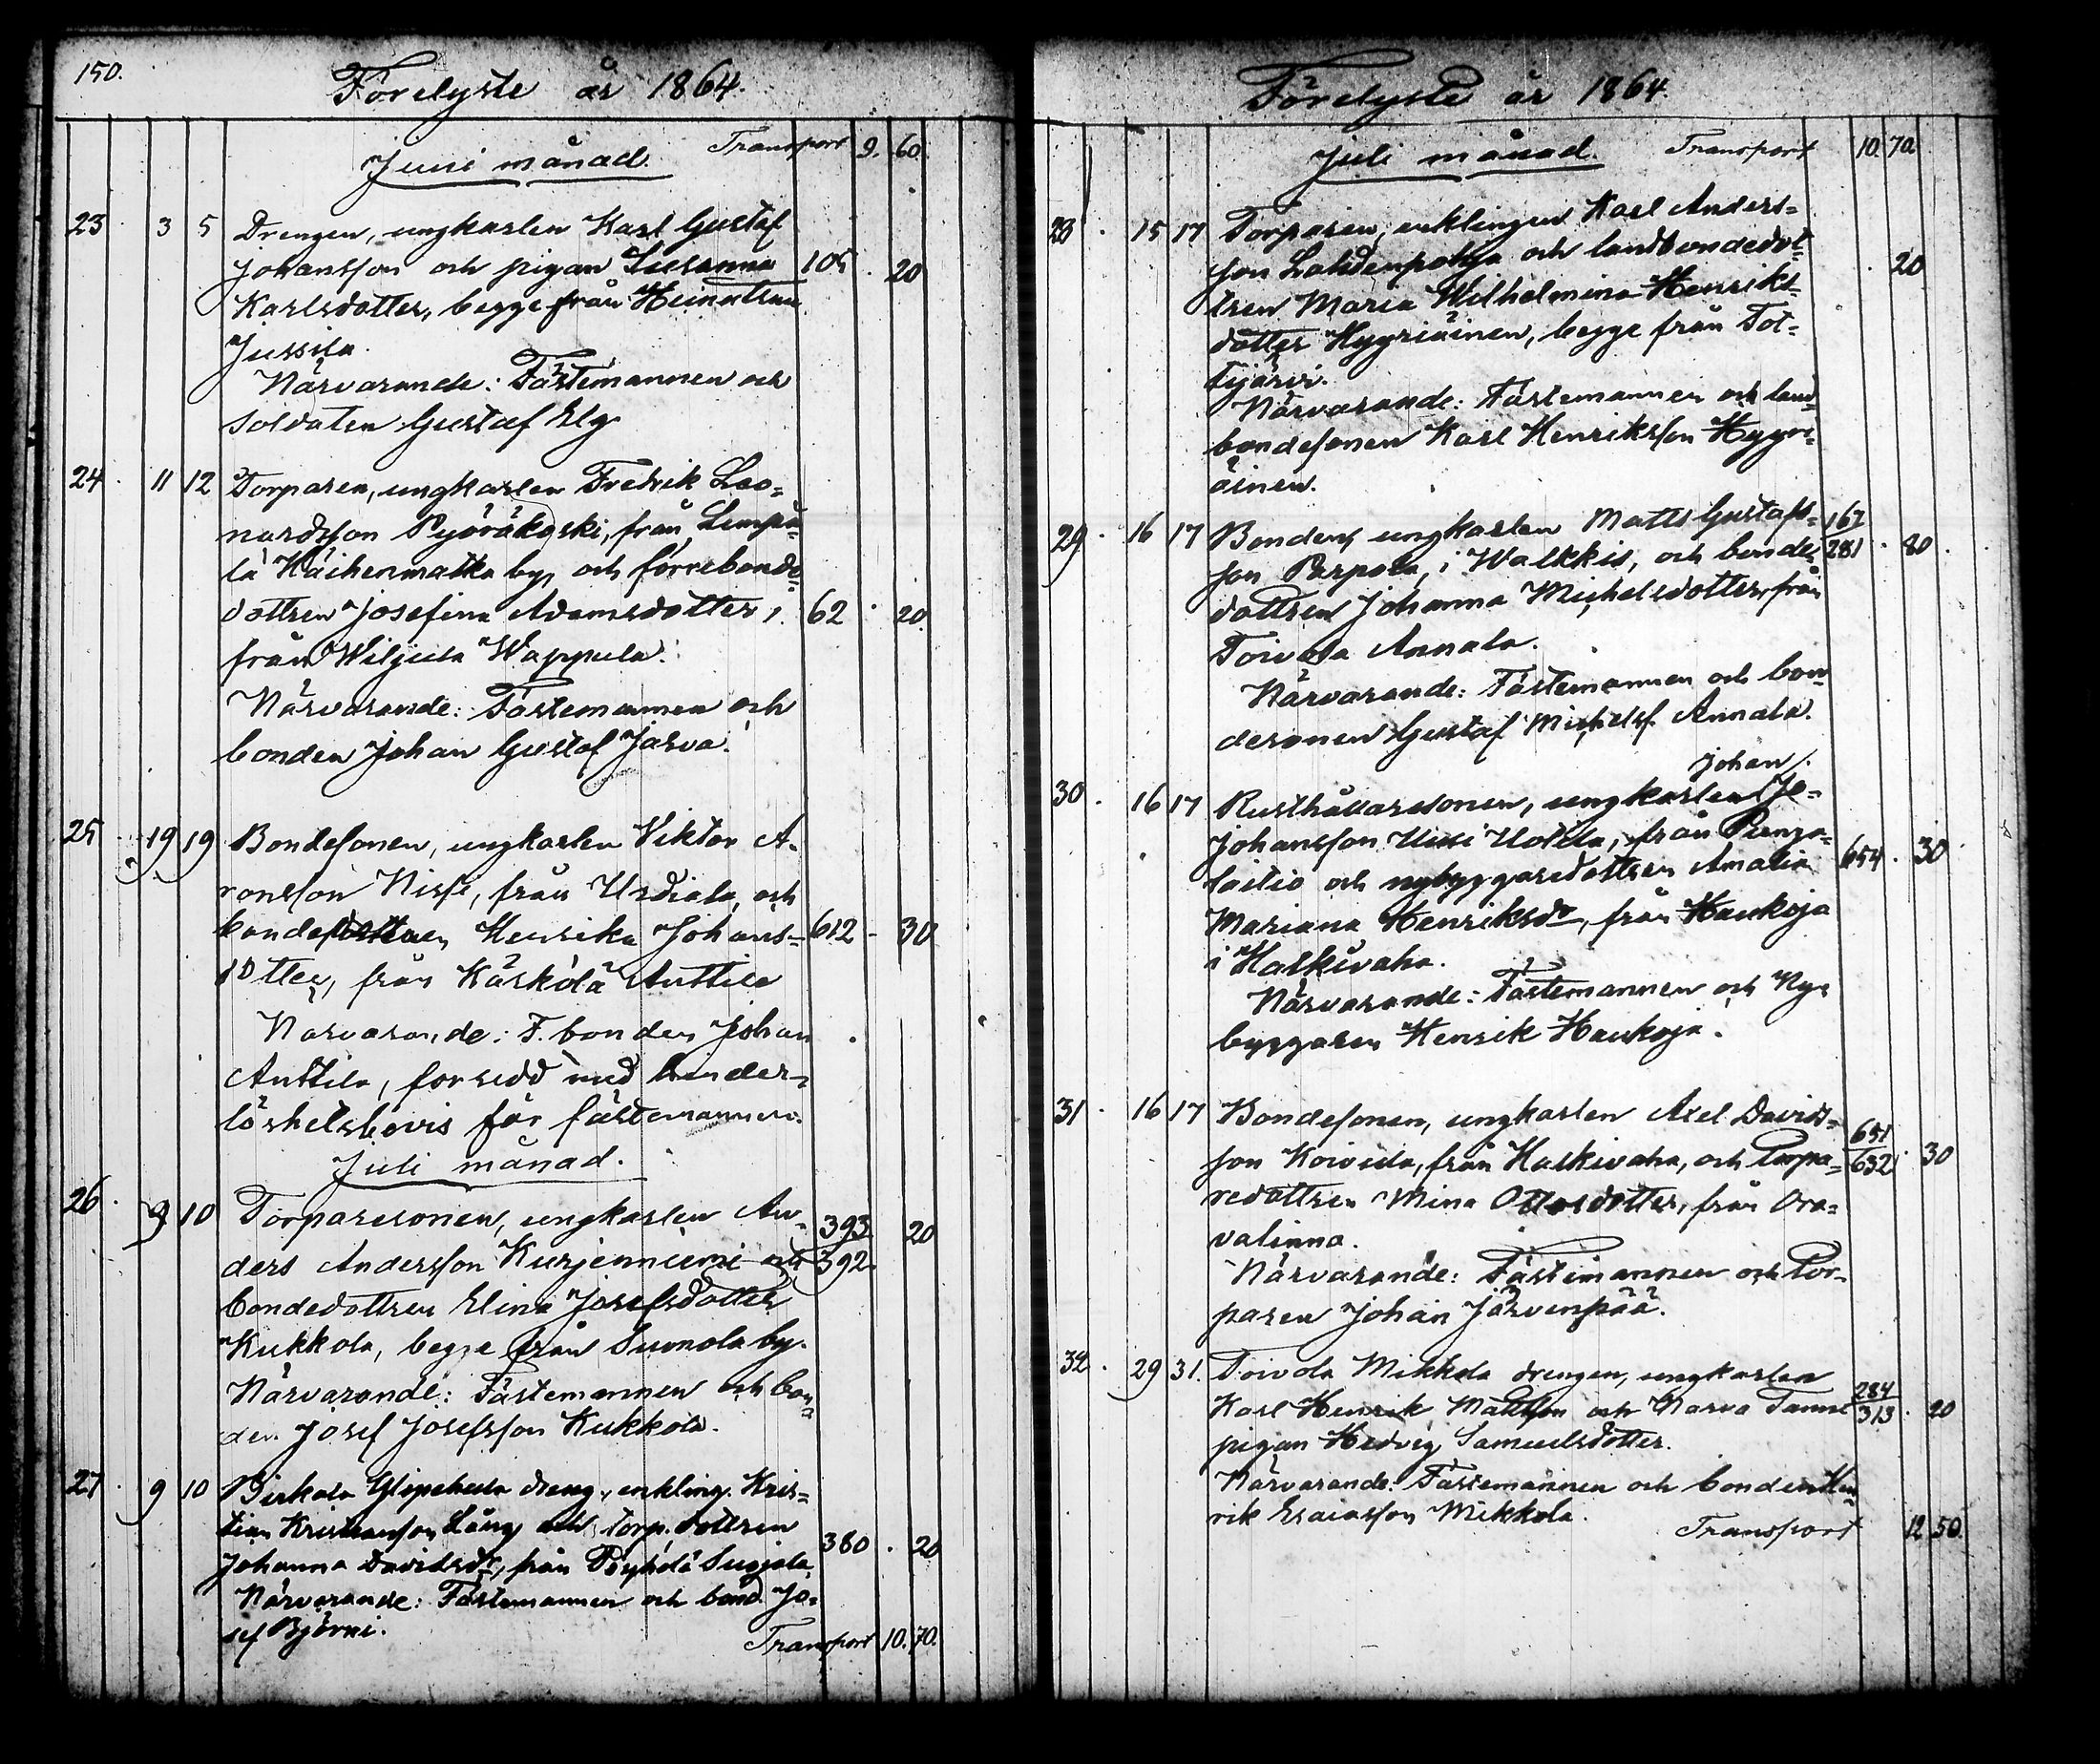 150.
Förelyste år 1864.
Juni månad. Transport 9. 60.
23 3 5 Drengen, ungkarlen Karl Gustaf
Johansson och pigan Susanna 105 20
Karlsdotter, begge från Heinatsun
Jussila.
Närvarande: Fästemannen och
soldaten Gustaf Elg
24 11 12 Torparen, ungkarlen Fredrik Leo-
nardsson Pyöräkoski, från Lempää-
lä Häihenmatka by, och förrebonde-
dottren Josefina Adamsdotter, 62 20
från Wiljula Wappula.
Närvarande: Fästemannen och
bonden Johan Gustaf Jarva.
25 19 19 Bondesonen, ungkarlen Viktor A-
ronsson Nissi, från Urdiala, och
bondedottren Henrika Johans- 612 30
dotter, från Kärkölä Anttila
Närvarande: F. bonden Johan
Anttila, försedd med hinder-
löshetsbevis för fästemannen.
Juli månad.
26 9 10 Torparesonen, ungkarlen An- 393 20
ders Andersson Kurjenniemi och 392
bondedottren Elina Josefsdotter
Kukkola, begge från Suonola by.
Närvarande: Fästemannen och bon-
den Josef Josefsson Kukkola.
27 9 10 Birkala dreng, enkling. Kris-
tian Kristiansson Lång och torp. dottren
Johanna Davidsdr, från Pöyhölä Suojala. 380 20
Närvarande: Fästemannen och bond. Jo-
sef Björni.
Transport 10. 70.
Förelyste år 1864.
Juli månad. Transport 10. 70
28 15 17 Torparen, enklingen Karl Anders-
son Lahdenpohja och landbondedot- 20
tren Maria Wilhelmina Henriks-
dotter Hyyriäinen, begge från Tot-
tijärvi.
Närvarande: Fästemannen och land-
bondesonen Karl Henriksson Hyyri-
äinen.
29 16 17 Bonden, ungkarlen Matts Gustafs- 167
son Parpola, i Walkkis, och bonde- 281 20
dottren Johanna Michelsdotter, från
Toivola Annala.
Närvarande: Fästemannen och bon-
desonen Gustaf Michelsf. Annala.
Johan
30 16 17 Rusthållaresonen, ungkarlen Jo-
Johansson Uusi Uotila, från Punga-
laitio och nybyggaredottren Amalia 654 30
Mariana Henriksdr, från Haukoja
i Halkivaha.
Närvarande: Fästemannen och Ny-
byggaren Henrik Haukoja.
31 16 17 Bondesonen, ungkarlen Axel Davids- 651
son Koivula, från Halkivaha, och Torpa- 632 30
redottren Mina Ottosdotter, från Ora-
valinna.
Närvarande: Fästemannen och Tor-
paren Johan Järvenpää.
32 29 31. Toivola Mikkola drengen, ungkarlen
Karl Henrik Mattsson och Narva Tanni 284 313 20
pigan Hedvig Samuelsdotter.
Närvarande: Fästemannen och bonden Hen-
rik Esaiasson Mikkola.
Transport 12 50.